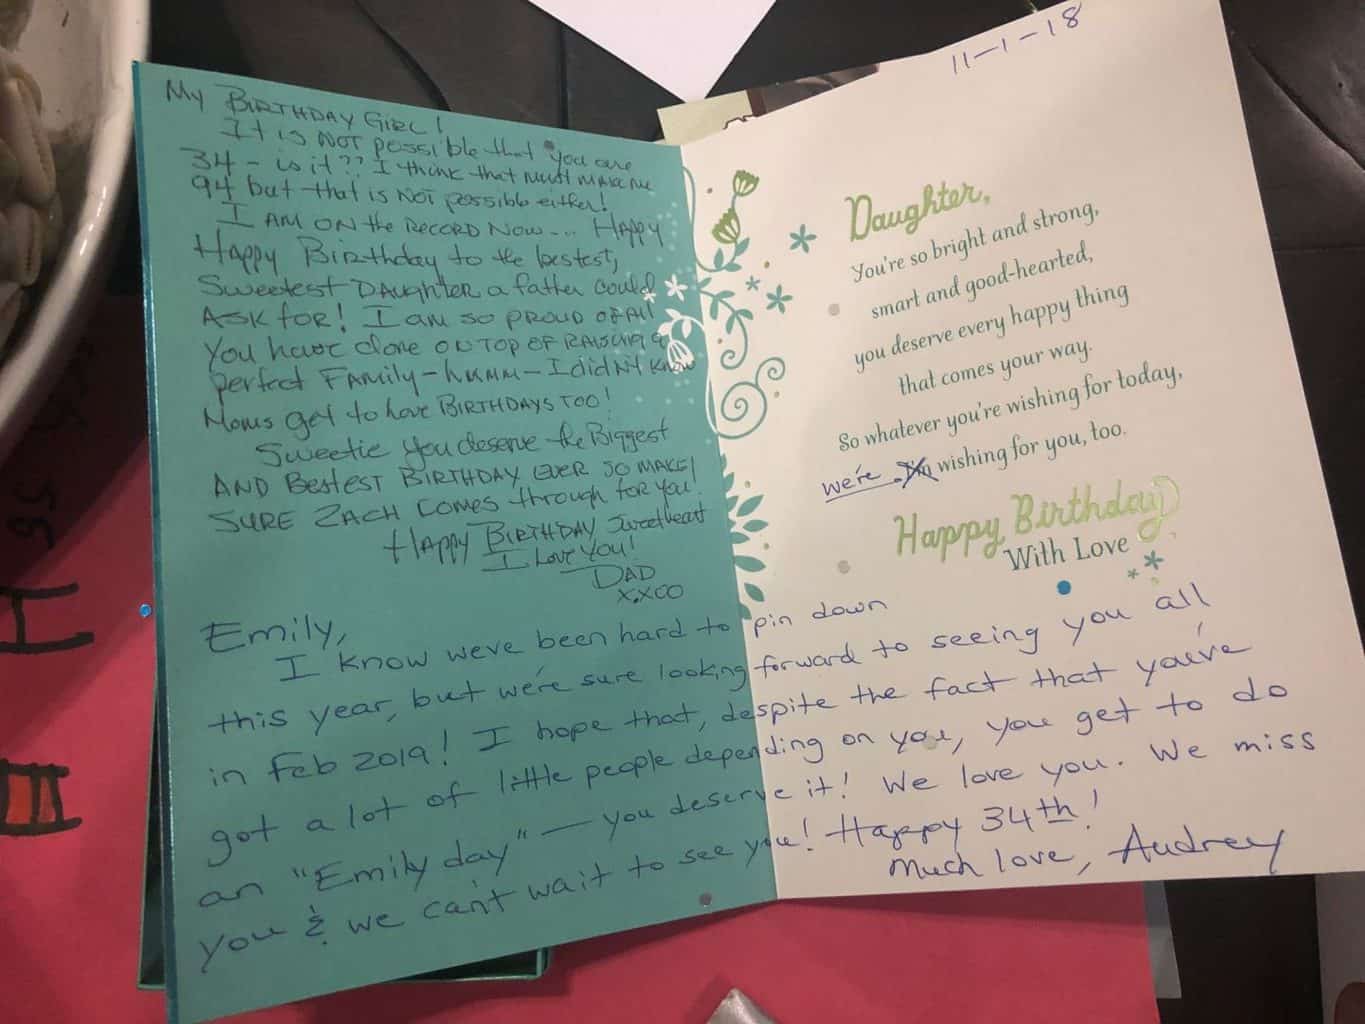 My BIRTHDAY GIRL!
It is NOT possible that you are
34 - is it?? I think that must make me
94 but that is NOT possible either!
I AM ON the RECORD NOW... HAPPY
Happy Birthday to the bestest,
Sweetest DAUGHTER a father could
ASK for! I am so PROUD OF All
You have done ON TOP OF RAISING a
perfect FAMILY - hmmm - I didNt know
Moms get to have BIRTHDAYS TOO!
Sweetie you deserve the Biggest
AND Bestest BIRTHDAY EVER SO MAKE
SURE ZACH COMES through for you!
HAPPY BIRTHDAY Sweetheart
I Love You!
DAD
XXOO
11-1-18
Daughter,
You're so bright and strong,
smart and good-hearted,
you deserve every happy thing
that comes your way.
So whatever you're wishing for today,
we're I'm wishing for you, too.
Happy Birthday
With Love
Emily,
I know we've been hard to pin down
this year, but we're sure looking forward to seeing you all
in Feb 2019! I hope that, despite the fact that you've
got a lot of little people depending on you, you get to do
an "Emily day" — you deserve it! We love you. We miss
you & we can't wait to see you! Happy 34th!
Much love, Audrey
H